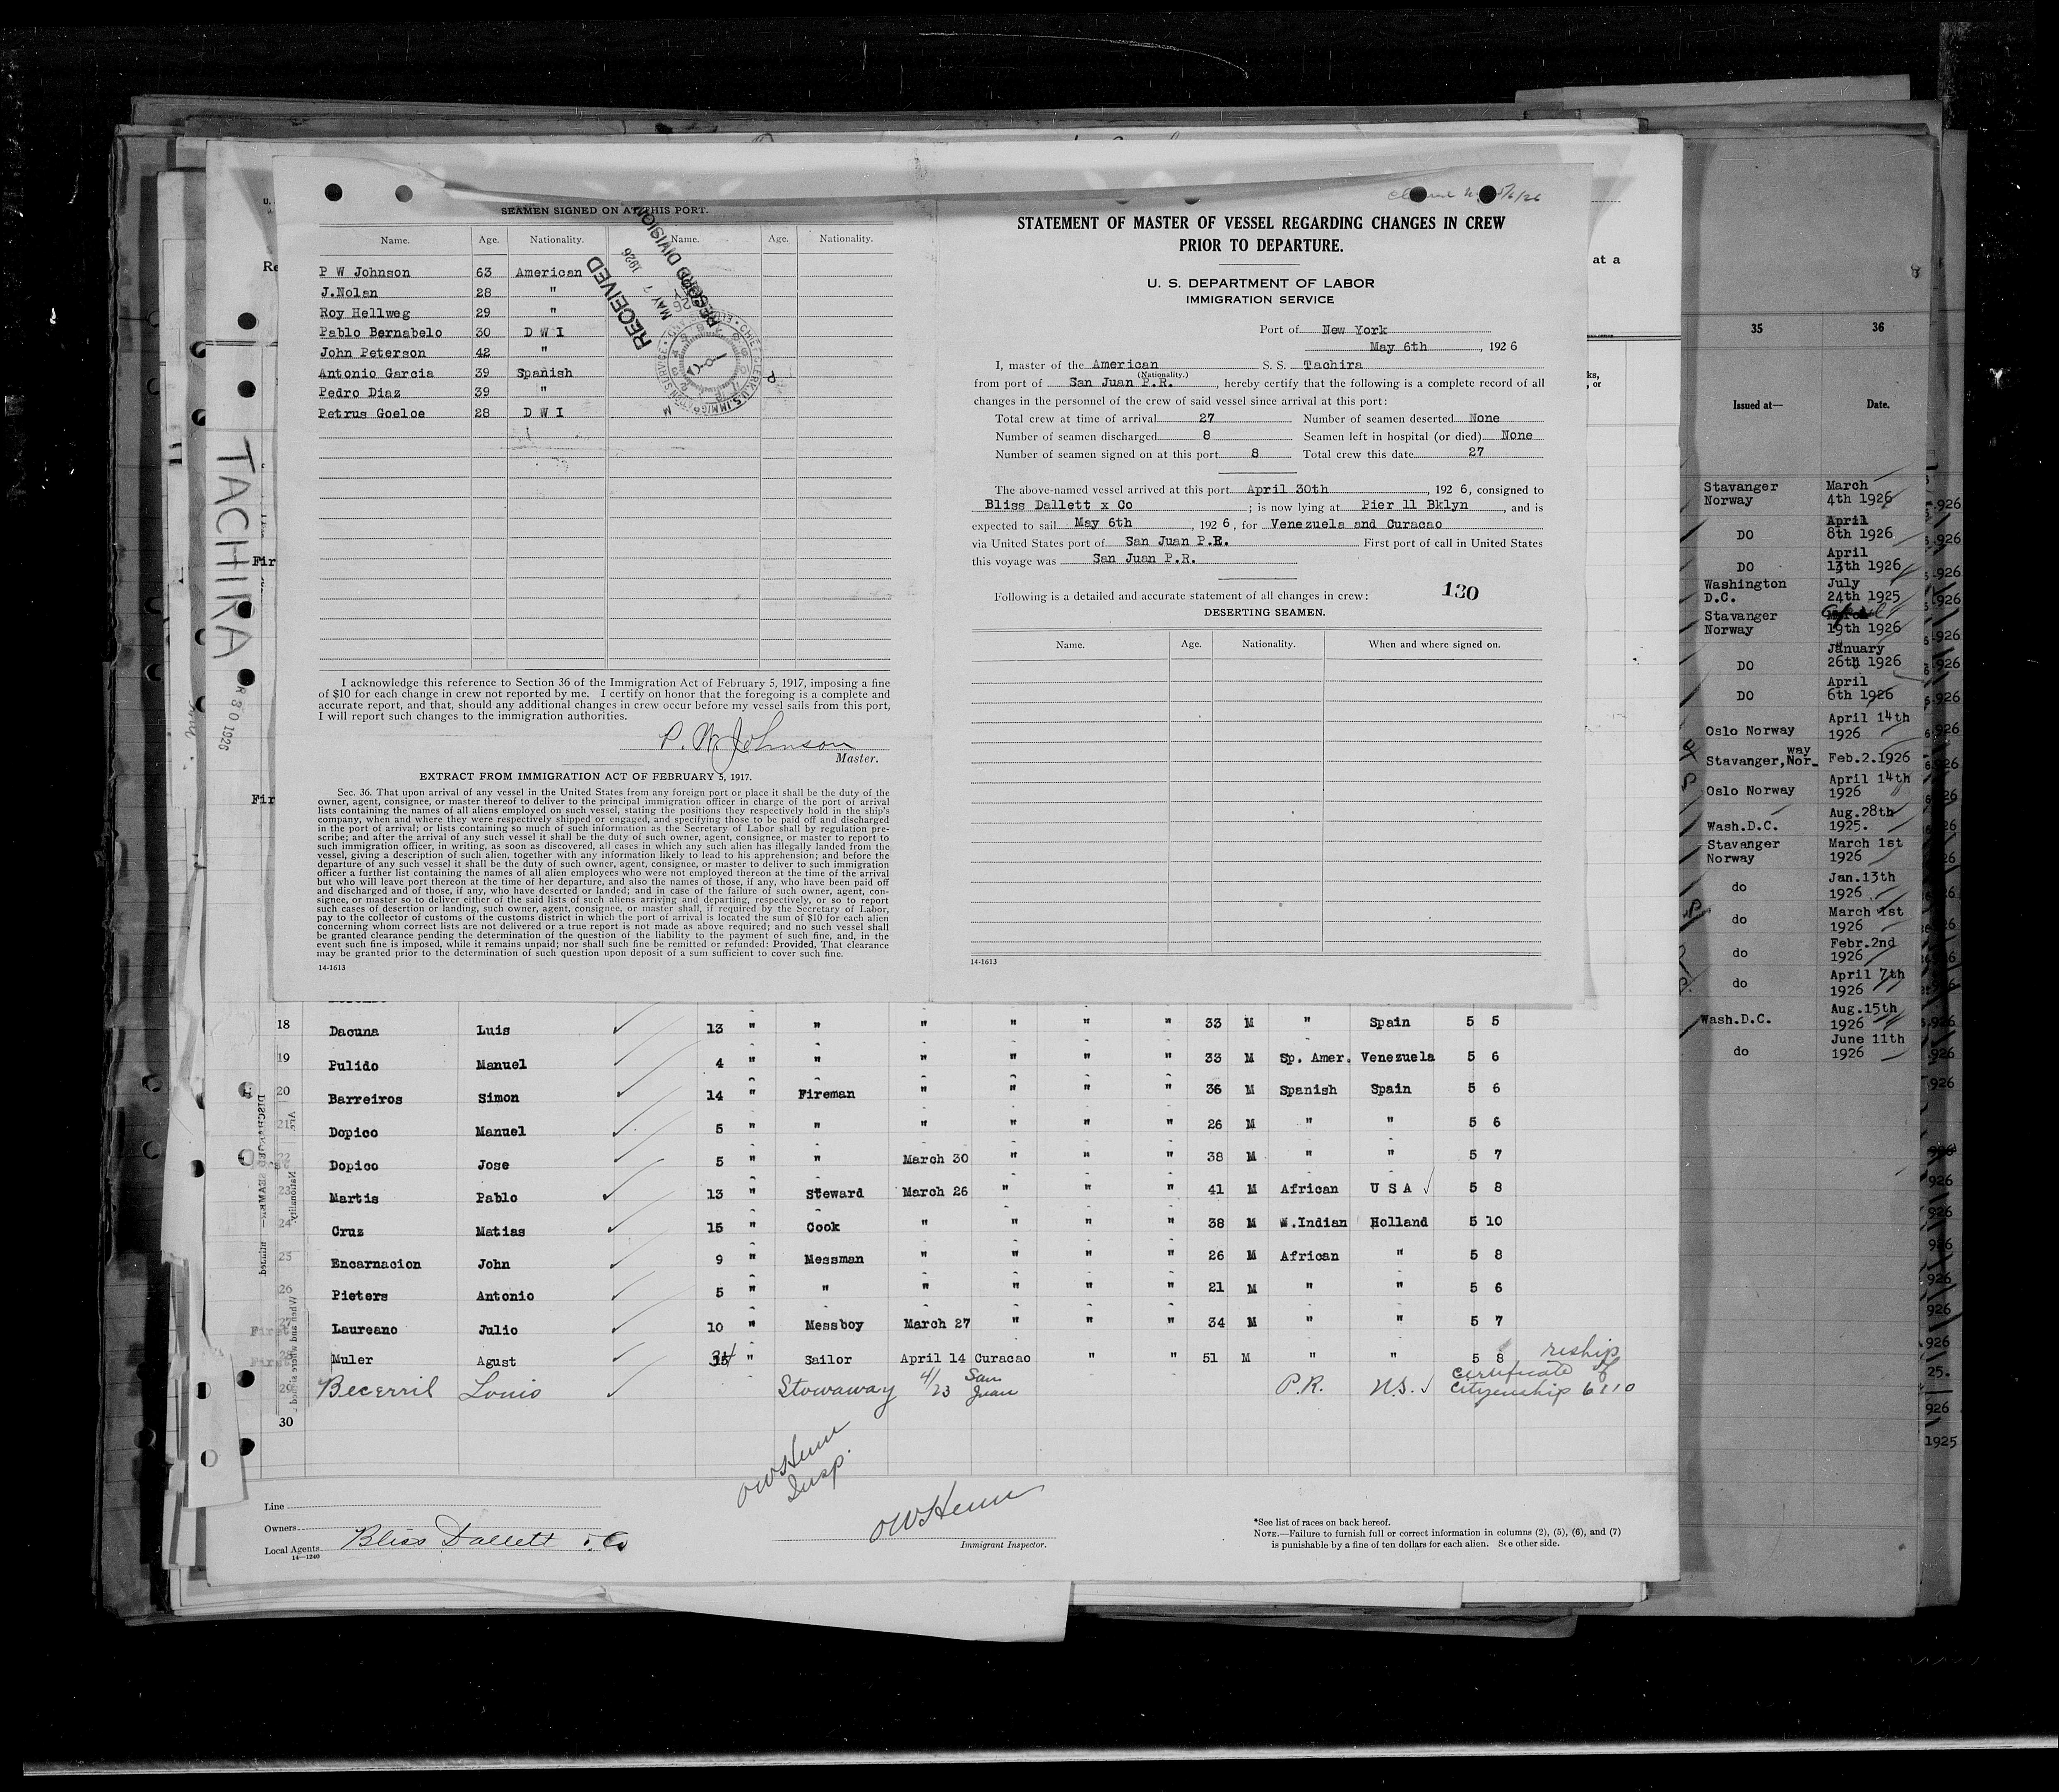 SEAMEN SIGNED ON AT THIS PORT.
Name. Age. Nationality. Name. Age. Nationality.
P W Johnson 63 American
J.Nolan 28 "
Roy Hellweg 29 "
Pablo Bernabelo 30 D W I
John Peterson 42 "
Antonio Garcia 39 Spanish
Pedro Diaz 39 "
Petrus Goeloe 28 D W I
RECEIVED
MAY 7 1926
RECORD DIVISION
I acknowledge this reference to Section 36 of the Immigration Act of February 5, 1917, imposing a fine
of $10 for each change in crew not reported by me. I certify on honor that the foregoing is a complete and
accurate report, and that, should any additional changes in crew occur before my vessel sails from this port,
I will report such changes to the immigration authorities.
P. W. Johnson
Master.
EXTRACT FROM IMMIGRATION ACT OF FEBRUARY 5, 1917.
Sec. 36. That upon arrival of any vessel in the United States from any foreign port or place it shall be the duty of the
owner, agent, consignee, or master thereof to deliver to the principal immigration officer in charge of the port of arrival
lists containing the names of all aliens employed on such vessel, stating the positions they respectively hold in the ship's
company, when and where they were respectively shipped or engaged, and specifying those to be paid off and discharged
in the port of arrival; or lists containing so much of such information as the Secretary of Labor shall by regulation pre-
scribe; and after the arrival of any such vessel it shall be the duty of such owner, agent, consignee, or master to report to
such immigration officer, in writing, as soon as discovered, all cases in which any such alien has illegally landed from the
vessel, giving a description of such alien, together with any information likely to lead to his apprehension; and before the
departure of any such vessel it shall be the duty of such owner, agent, consignee, or master to deliver to such immigration
officer a further list containing the names of all alien employees who were not employed thereon at the time of the arrival
but who will leave port thereon at the time of her departure, and also the names of those, if any, who have been paid off
and discharged and of those, if any, who have deserted or landed; and in case of the failure of such owner, agent, con-
signee, or master so to deliver either of the said lists of such aliens arriving and departing, respectively, or so to report
such cases of desertion or landing, such owner, agent, consignee, or master shall, if required by the Secretary of Labor,
pay to the collector of customs of the customs district in which the port of arrival is located the sum of $10 for each alien
concerning whom correct lists are not delivered or a true report is not made as above required; and no such vessel shall
be granted clearance pending the determination of the question of the liability to the payment of such fine, and, in the
event such fine is imposed, while it remains unpaid; nor shall such fine be remitted or refunded: Provided, That clearance
may be granted prior to the determination of such question upon deposit of a sum sufficient to cover such fine.
14-1613
STATEMENT OF MASTER OF VESSEL REGARDING CHANGES IN CREW
PRIOR TO DEPARTURE.
U. S. DEPARTMENT OF LABOR
IMMIGRATION SERVICE
Port of New York
May 6th, 1926
I, master of the American S. S. Tachira
(Nationality.)
from port of San Juan P.R., hereby certify that the following is a complete record of all
changes in the personnel of the crew of said vessel since arrival at this port:
Total crew at time of arrival 27 Number of seamen deserted None
Number of seamen discharged 8 Seamen left in hospital (or died) None
Number of seamen signed on at this port 8 Total crew this date 27
The above-named vessel arrived at this port April 30th, 192 6, consigned to
Bliss Dallett x Co; is now lying at Pier 11 Bklyn, and is
expected to sail May 6th, 192 6, for Venezuela and Curacao
via United States port of San Juan P.R. First port of call in United States
this voyage was San Juan P.R.
Following is a detailed and accurate statement of all changes in crew: 130
DESERTING SEAMEN.
Name. Age. Nationality. When and where signed on.
14-1613
TACHIRA
18 Dacuna Luis 13 " " " " " " 33 M " Spain 5 5
19 Pulido Manuel 4 " " " " " " 33 M Sp. Amer. Venezuela 5 6
20 Barreiros Simon 14 " Fireman " " " " 36 M Spanish Spain 5 6
21 Dopico Manuel 5 " " " " " " 26 M " " 5 6
22 Dopico Jose 5 " " March 30 " " " 38 M " " 5 7
23 Martis Pablo 13 " Steward March 26 " " " 41 M African U S A 5 8
24 Cruz Matias 15 " Cook " " " " 38 M W.Indian Holland 5 10
25 Encarnacion John 9 " Messman " " " " 26 M African " 5 8
26 Pieters Antonio 5 " " " " " " 21 M " " 5 6
27 Laureano Julio 10 " Messboy March 27 " " " 34 M " " 5 7
28 Muler Agust " Sailor April 14 Curacao " " 51 M " " 5 8 reship
29 Becerril Louis Stowaway 4/23 San Juan P.R. U.S. Certificate of Citizenship 6110
30
OWHenn
Insp.
Line
Owners
Local Agents Bliss Dallett & Co
14-1240
OWHenn
Immigrant Inspector.
*See list of races on back hereof.
NOTE.—Failure to furnish full or correct information in columns (2), (5), (6), and (7)
is punishable by a fine of ten dollars for each alien. See other side.
at a
35 36
Issued at— Date.
Stavanger Norway March 4th 1926
DO April 8th 1926
DO April 13th 1926
Washington D.C. July 24th 1925
Stavanger Norway April 19th 1926
DO January 26th 1926
DO April 6th 1926
Oslo Norway April 14th 1926
Stavanger,Norway Feb.2.1926
Oslo Norway April 14th 1926
Wash.D.C. Aug.28th 1925.
Stavanger Norway March 1st 1926
do Jan.13th 1926
do March 1st 1926
do Febr.2nd 1926
do April 7th 1926
Wash.D.C. Aug.15th 1926
do June 11th 1926